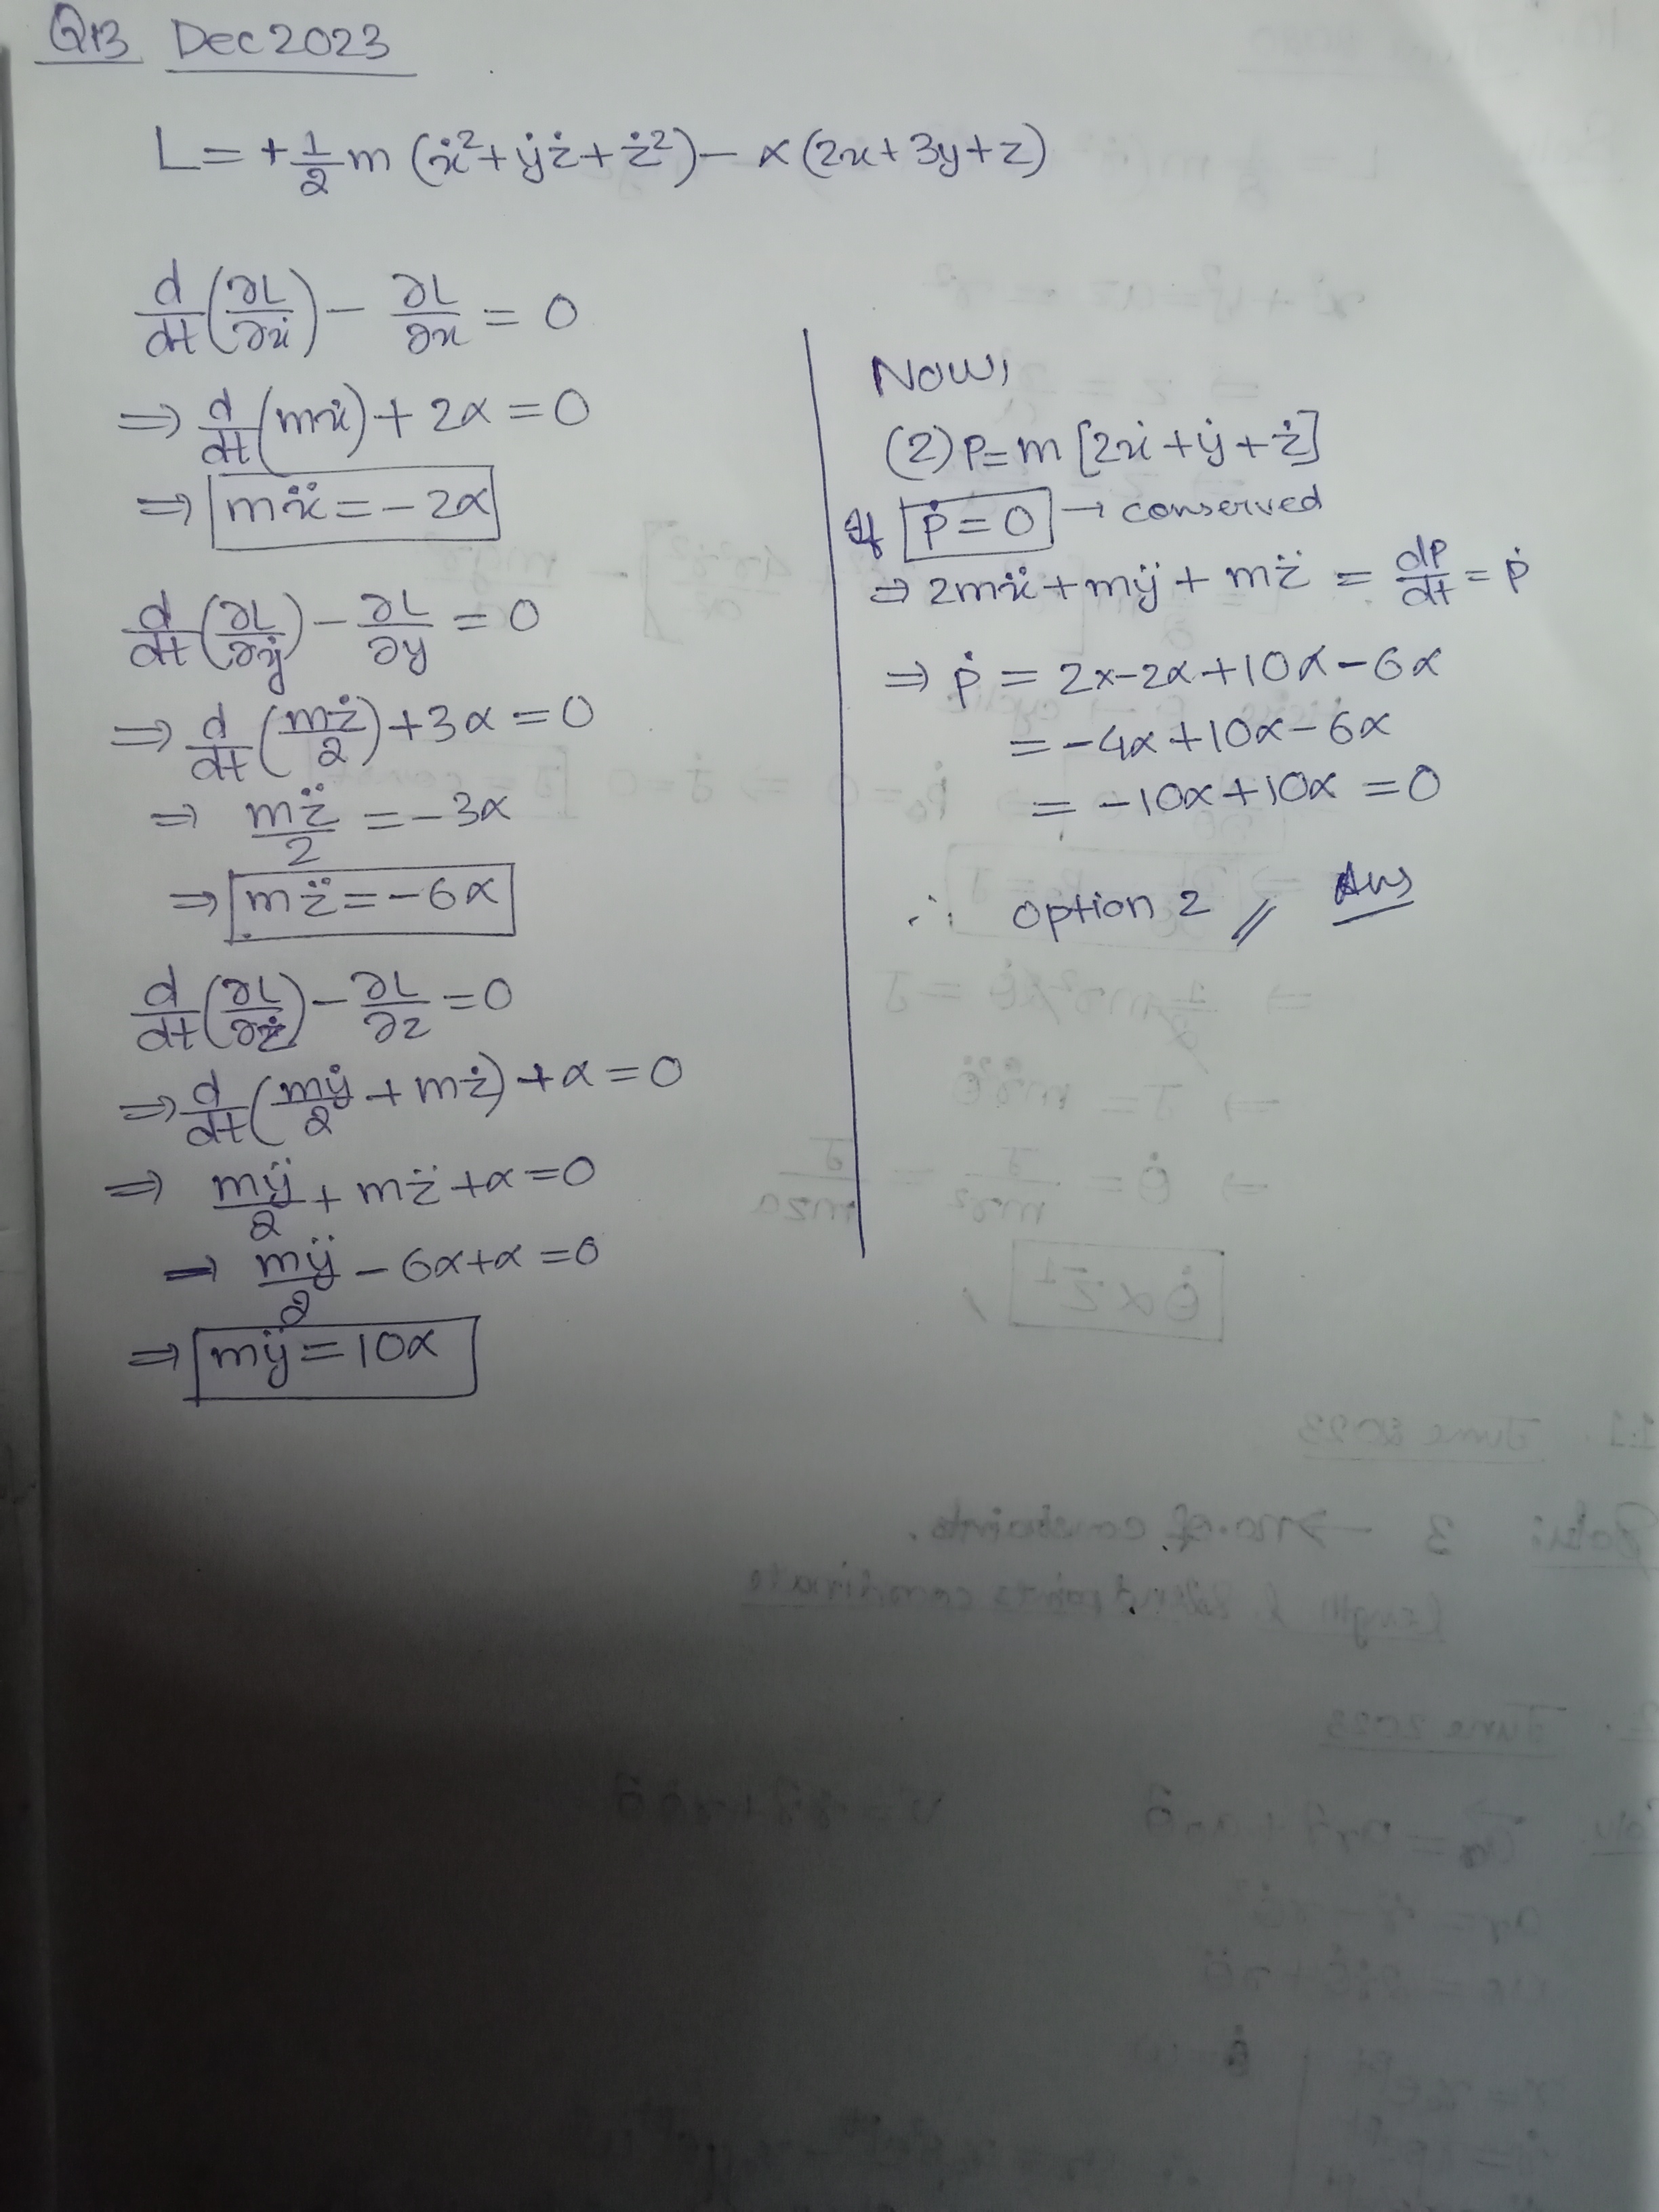 Q13 Dec 2023
L = + 1/2 m (ẋ² + ẏż + ż²) - α (2x + 3y + z)
d/dt (∂L/∂ẋ) - ∂L/∂x = 0
⇒ d/dt (mẋ) + 2α = 0
⇒ mẍ = -2α
d/dt (∂L/∂ẏ) - ∂L/∂y = 0
⇒ d/dt (mż/2) + 3α = 0
⇒ mz̈/2 = -3α
⇒ mz̈ = -6α
d/dt (∂L/∂ż) - ∂L/∂z = 0
⇒ d/dt (mẏ/2 + mż) + α = 0
⇒ mÿ/2 + mz̈ + α = 0
⇒ mÿ/2 - 6α + α = 0
⇒ mÿ = 10α
Now,
(2) P = m [2ẋ + ẏ + ż]
If ṗ = 0 → conserved
⇒ 2mẍ + mÿ + mz̈ = dp/dt = ṗ
⇒ ṗ = 2x-2α + 10α - 6α
= -4α + 10α - 6α
= -10α + 10α = 0
∴ option 2 // Ans